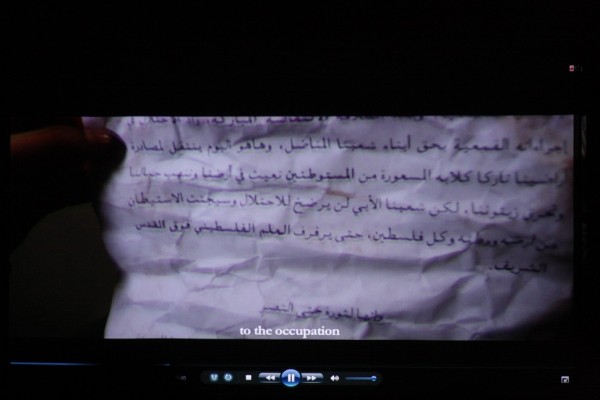 إجراءاته القمعية بحق أبناء شعبنا المناضل، وهاهو اليوم ينتقل لمصادرة
أراضينا تاركا كلابه المسعورة من المستوطنين تعيث في أرضنا وتنهب خيراتنا
وتحرق زيتوننا، لكن شعبنا الأبي لن يرضخ للاحتلال وسيجتث الاستيطان
من أرضه ووطنه وكل فلسطين، حتى يرفرف العلم الفلسطيني فوق القدس
الشريف.
وإنها لثورة حتى النصر
to the occupation